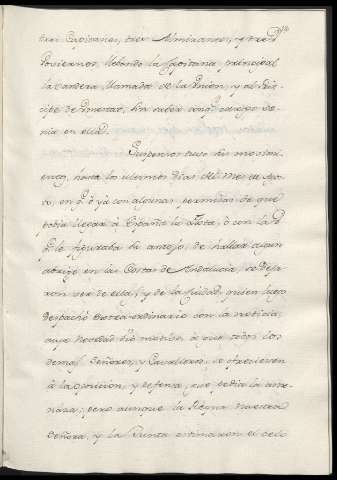 tres Capitanes, tres Almirantes, y tres
llebando la Capitana principal
la vandera llamada de la Union, y el Prin-
cipe de
nia en ella.
Suspensos tuvo sus movimi-
entos, hasta los ultimos dias del mes de Agos-
to, en q.e ó ya con algunas premisas de que
podia llegar à España la Flota, ò con la
q.e le figuraba su antojo, de hallar algun
abrigo en las Costas de Andalucia, se deja-
ron ver de ella, y de la Ciudad, quien luego
despachó extraordinario con la noticia,
cuya novedad dió motivo à que todos los
demas Señores, y Cavalleros, se ofreciesen
à la oposicion, y defensa, que pedia la ame-
naza; pero aunque la Reyna nuestra
Señora, y la Junta estimaron el celo